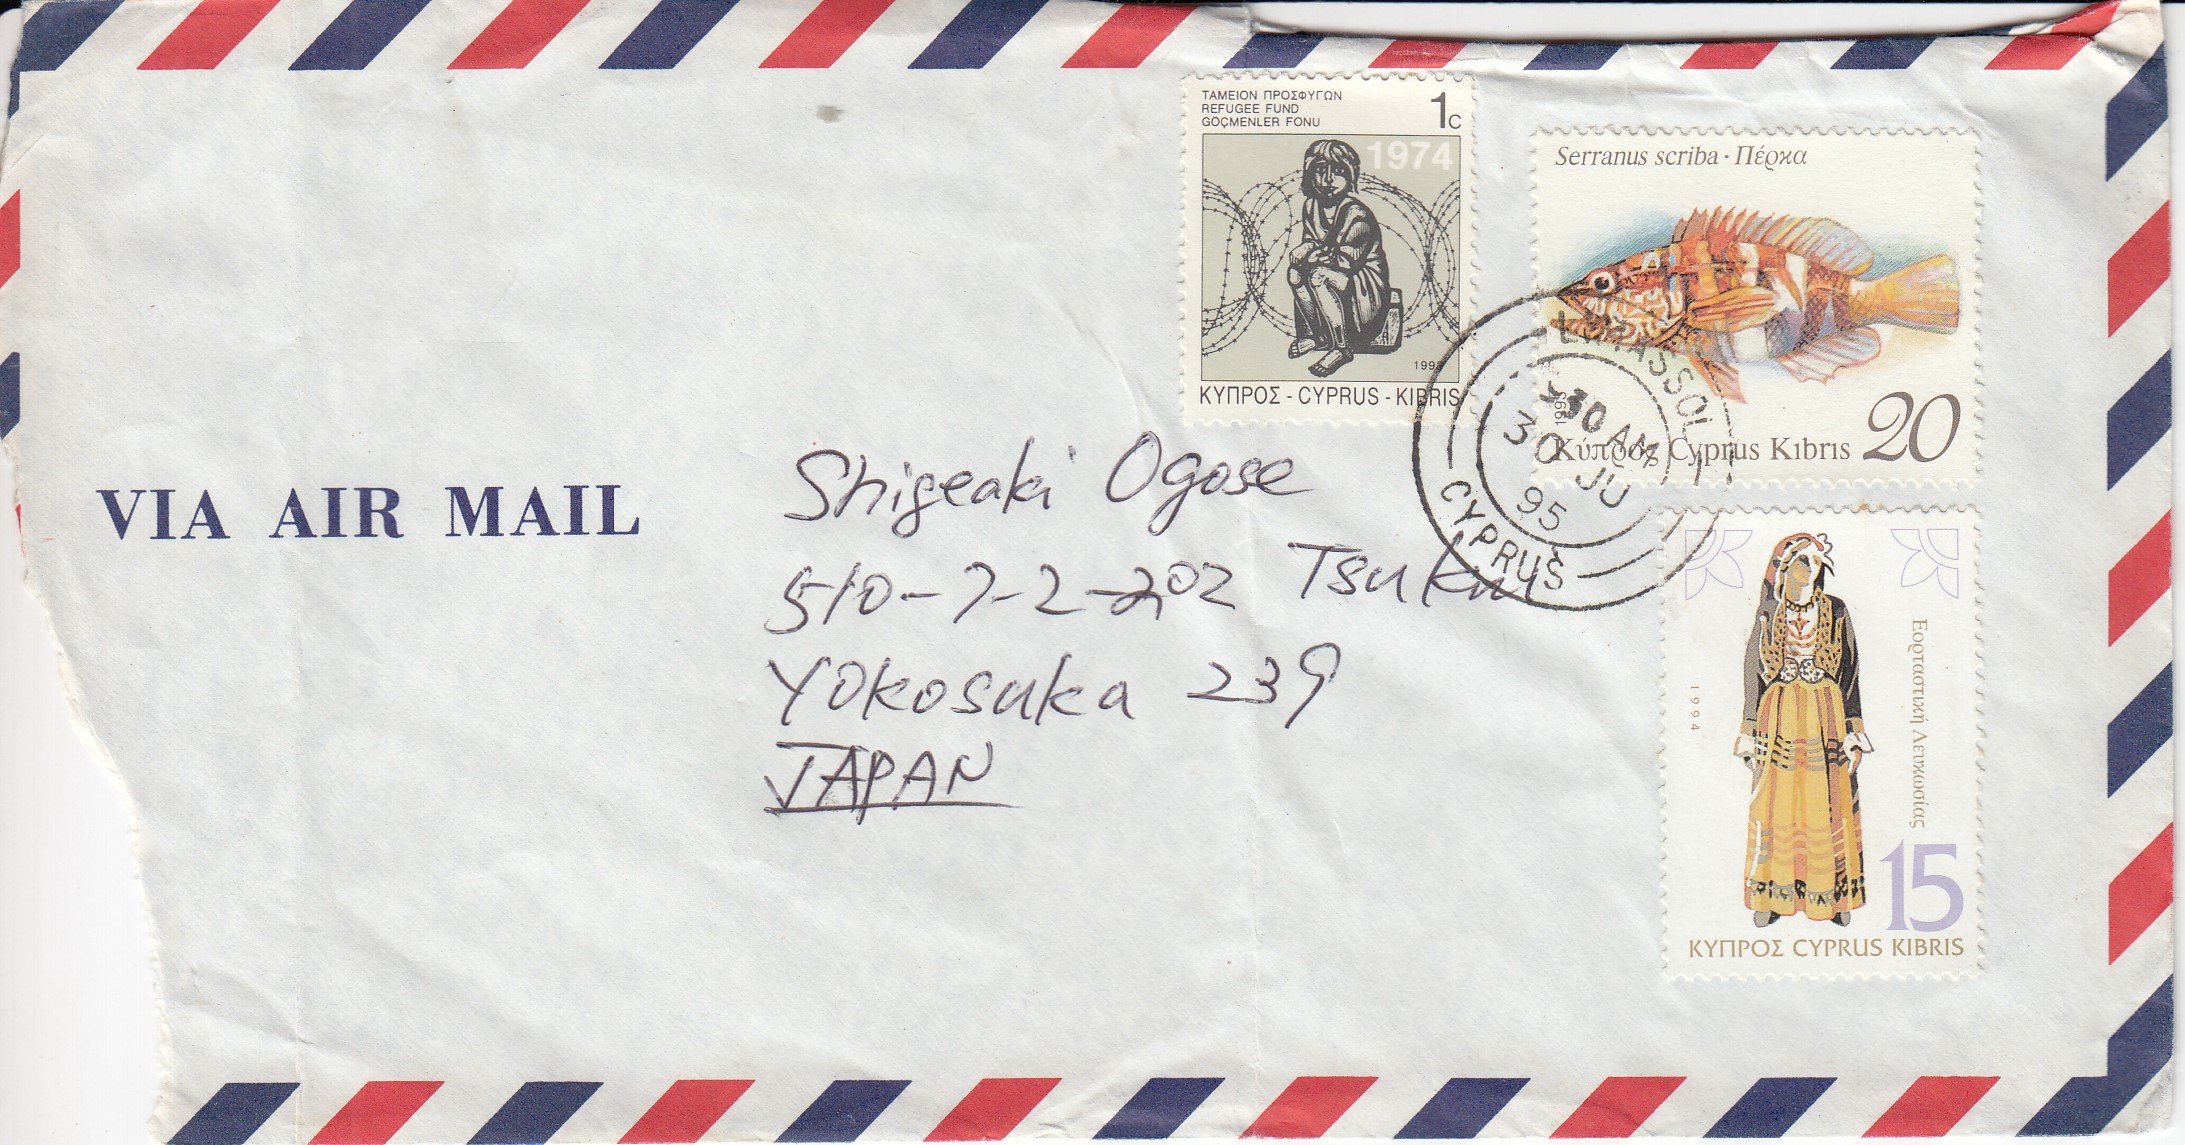 ΤΑΜΕΙΟΝ ΠΡΟΣΦΥΓΩΝ
REFUGEE FUND
GÖÇMENLER FONU
1c
1974
ΚΥΠΡΟΣ - CYPRUS - KIBRIS
Serranus scriba · Πέρκα
1993
Κύπρος Cyprus Kıbrıs 20
LIMASSOL
30 AM
30 JU
95
CYPRUS
VIA AIR MAIL
Shigeaki Ogose
510-7-2-202
Yokosuka 239
JAPAN
1994
Εορταστική Λευκωσίας
15
ΚΥΠΡΟΣ CYPRUS KIBRIS